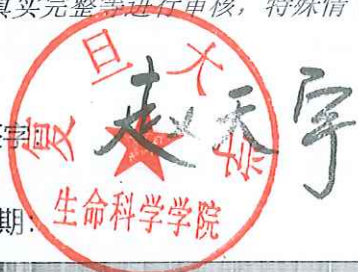 真实完整等进行审核，特殊情
复旦大学
字：赵天宇
期：
生命科学学院